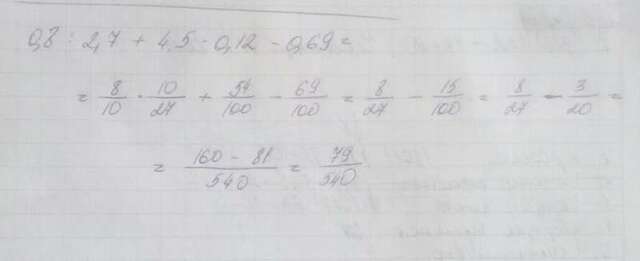 0,8 : 2,7 + 4,5 · 0,12 - 0,69 =
= 8/10 · 10/27 + 54/100 - 69/100 = 8/27 - 15/100 = 8/27 - 3/20 =
= 160 - 81/540 = 79/540